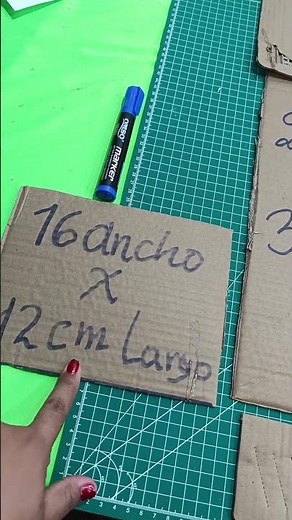 16 ancho
X
12 cm Largo
marker
3